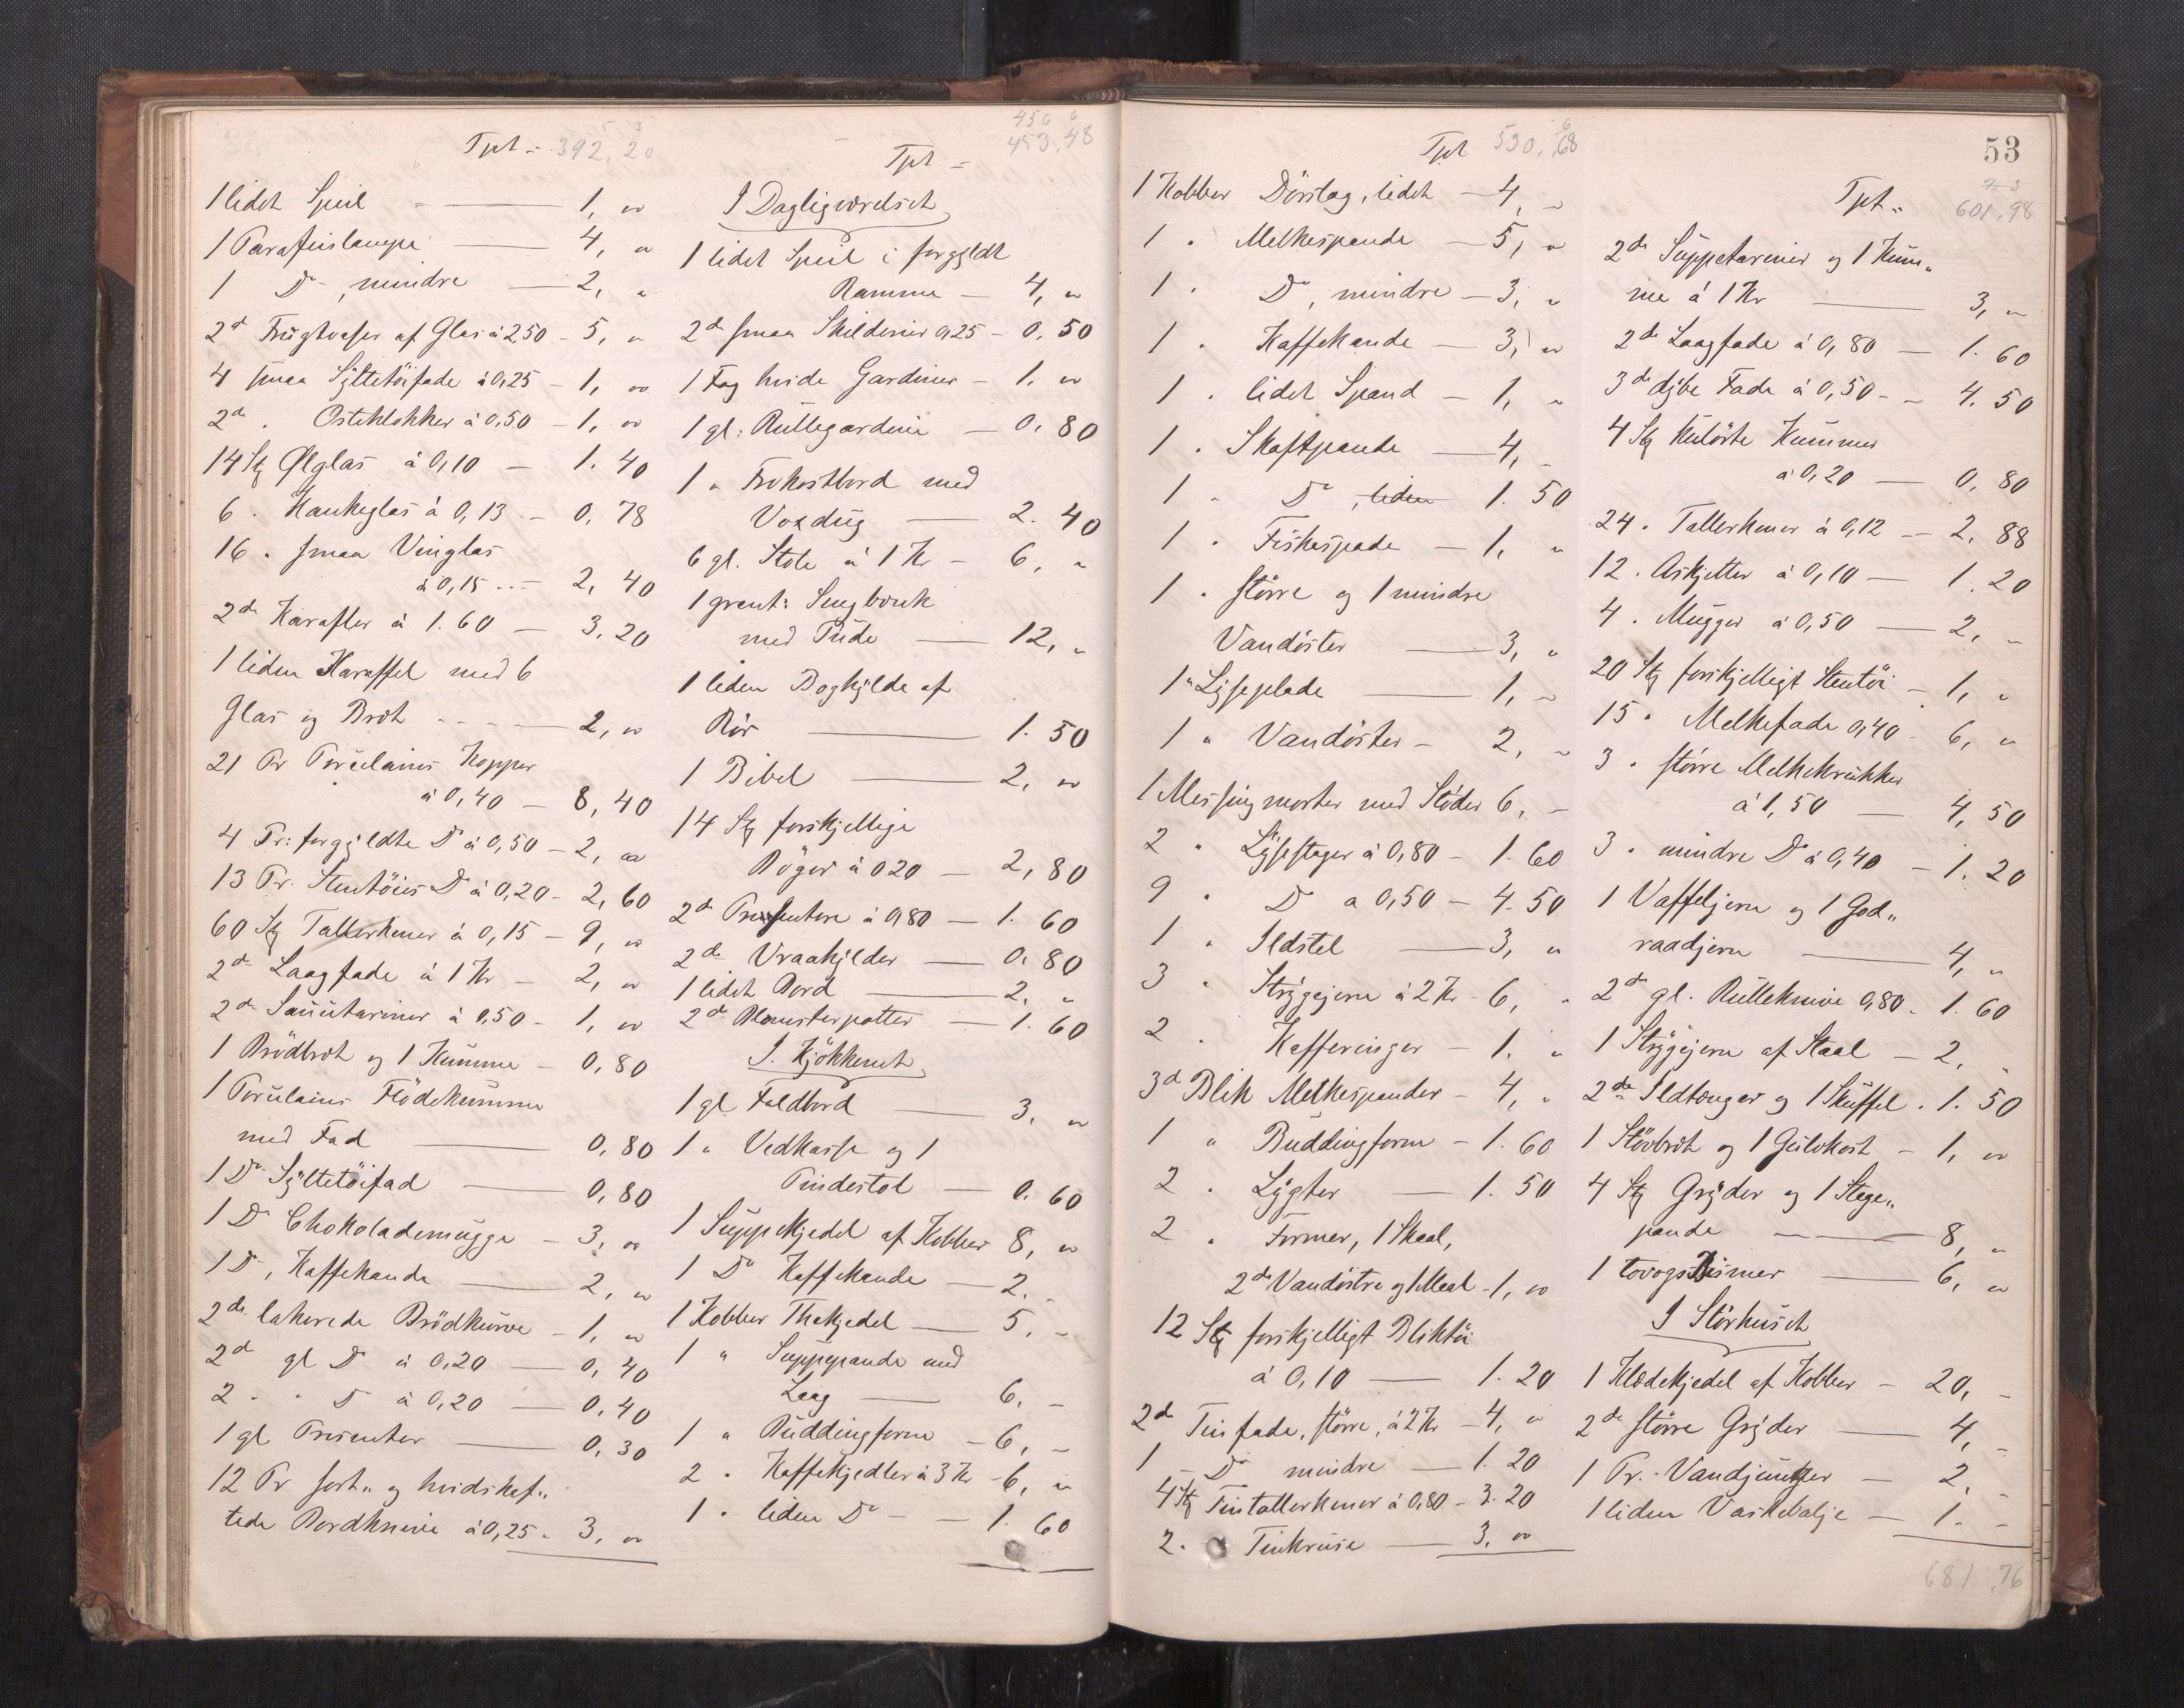 Tpt = 392,20
1 lidet Speil — 1, "
1 Parafinslampe — 4, "
1 Do, mindre — 2, "
2de Frugtvaser af Glas à 2.50 - 5, "
4 smaa Syltetöifade à 0,25 - 1, "
2de " Osteklokker à 0,50 - 1, "
14 Stk Ølglas à 0,10 - 1. 40
6 " Hankeglas à 0,13 - 0, 78
16 " smaa Vinglas
à 0,15 - 2, 40
2de Karafler à 1.60 - 3,20
1 liden Karaffel med 6
Glas og Bret - 2, "
21 Pr Porcelains Kopper
à 0,40 - 8, 40
4 Pr: forgyldte Do à 0,50 - 2, "
13 Pr. Stentöies Do à 0,20 - 2, 60
60 Stk Tallerkener à 0,15 - 9, "
2de Laagfade à 1 Kr - 2, "
2de Sauuteriner à 0,50 - 1, "
1 Brödbret og 1 Kumme - 0, 80
1 Porcelains Flödekumme
med Fad — 0, 80
1 Do Syltetöifad — 0, 80
1 Do Chokolademugge - 3, "
1 Do, Kaffekande — 2, "
2de lakerede Brödkurve - 1, "
2de gl Do à 0,20 — 0, 40
2 " " Do à 0,20 — 0, 40
1 gl Presenter — 0, 30
12 Pr sort" og hvidskaf"
tede Bordknive à 0,25 - 3, "
456 6
Tpt = 453,48
I Dagligværelset
1 lidet Speil i forgyldt
Ramme - 4, "
2de smaa Skilderier 0,25 - 0, 50
1 Fag hvide Gardiner - 1, "
1 gl: Rullegardin - 0, 80
1 " Frokostbord med
Voxdug — 2. 40
6 gl. Stole à 1 Kr - 6, "
1 grønt: Sengbænk
med Pude — 12, "
1 liden Boghylde af
Rör — 1. 50
1 Bibel — 2, "
14 Stk forskjellige
Böger à 0.20 - 2, 80
2de Presentere à 0,80 - 1. 60
2de Vraahylder — 0. 80
1 lidet Bord — 2, "
2de Blomsterpotter — 1. 60
I. Kjökkenet
1 gl Foldbord — 3, "
1 " Vedkasse og 1
Pindestol — 0. 60
1 Suppekjedel af Kobber 8, "
1 Do Kaffekande — 2. -
1 Kobber Thekjedel — 5. -
1 " Suppepande med
Laag — 6. -
1 " Buddingform - 6, -
2 " Kaffekjedler à 3 Kr - 6, "
1 " liden Do - - 1. 60
Tpt 530,68
1 Kobber Dörslag, lidet - 4, -
1 " Melkespande - 5, "
1 " Do, mindre - 3, "
1 " Kaffekande - 3, "
1 " lidet Spand - 1, "
1 " Skaftpande - 4, -
1 " Do, liden 1. 50
1 " Fiskespade - 1, "
1 " större og 1 mindre
Vandöster — 3, "
1 " Lyseplade — 1, -
1 " Vandöster - 2, -
1 Messingmorter med Stöder 6, -
2 " Lysestager à 0,80 - 1. 60
9 " Do a 0,50 - 4. 50
1 " Ildstel — 3, "
3 " Strygejern à 2 Kr - 6, "
2 " Kafferinger - 1, "
3de Blik Melkespander - 4, "
1 " Buddingform - 1. 60
2 " Lygter — 1. 50
2 " Former, 1 Skaal,
2de Vandöstre og 1 Maal - 1, "
12 Stk forskjelligt Bliktöi
à 0,10 — 1. 20
2de Tinfade, större, à 2 Kr - 4, "
1 - Do mindre - 1. 20
4 Stk Tintallerkener à 0,80 - 3. 20
2 " Tinkruse — 3, "
53
Tpt " 601,98
2de Suppeteriner og 1 Kum"
me à 1 Kr — 3, "
2de Laagfade à 0,80 - 1. 60
3de dybe Fade à 0,50 - - 4. 50
4 Stk kulörte Kummer
à 0,20 — 0, 80
24 " Tallerkener à 0,12 - 2, 88
12 " Askjetter à 0,10 - 1. 20
4 " Mugger à 0,50 — 2, -
20 Stk forskjelligt Stentöi - 1, "
15 " Melkefade 0,40 - 6, "
3 " större Melkekrukker
à 1,50 — 4, 50
3 " mindre Do à 0,40 - 1. 20
1 Vaffeljern og 1 God"
raadjern — 4, "
2de gl. Rulleknive 0,80 - 1. 60
1 Strygejern af Staal - 2, -
2de Ildtænger og 1 Skuffel - 1. 50
1 Stövbret og 1 Gulvkost - 1, "
4 Stk Gryder og 1 Stege"
pande — 8, "
1 tovogs Bismer — 6, "
I Störhuset
1 Klædekjedel af Kobber - 20, -
2de större Gryder — 4, -
1 Pr. Vandjunger - 2, -
1 liden Vaskebalje - 1. -
681,76